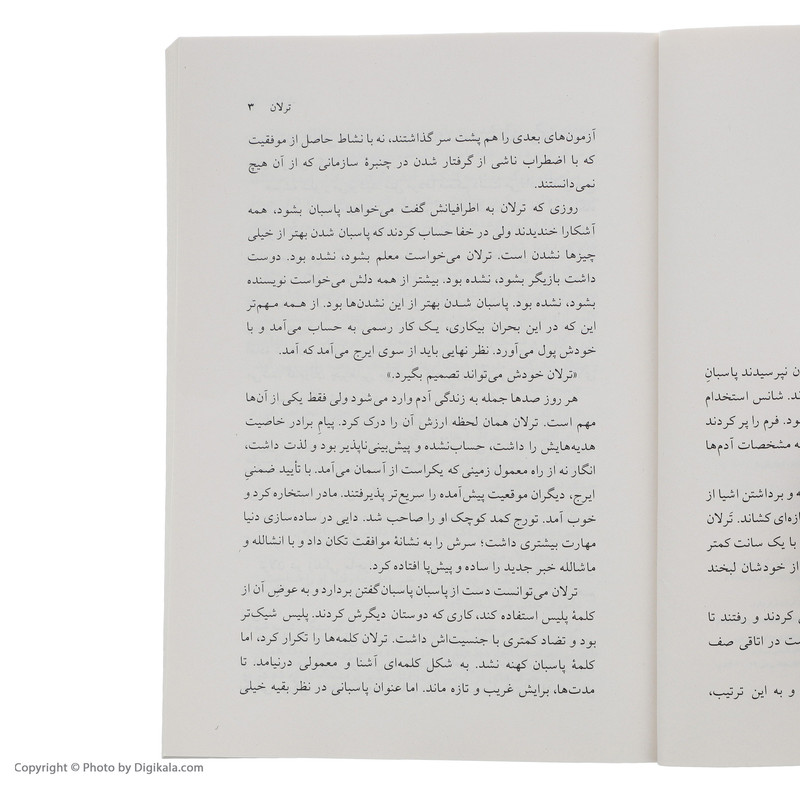 نپرسیدند پاسبانِ
شانس استخدام
فرم را پر کردند
مشخصات آدم‌ها
و برداشتن اشیا از
کشاند. تَرلان
با یک سانت کمتر
از خودشان لبخند
کردند و رفتند تا
در اتاقی صف
و به این ترتیب،
ترلان ۳
آزمون‌های بعدی را هم پشت سر گذاشتند، نه با نشاط حاصل از موفقیت
که با اضطراب ناشی از گرفتار شدن در چنبرهٔ سازمانی که از آن هیچ
نمی‌دانستند.
روزی که ترلان به اطرافیانش گفت می‌خواهد پاسبان بشود، همه
آشکارا خندیدند ولی در خفا حساب کردند که پاسبان شدن بهتر از خیلی
چیزها نشدن است. ترلان می‌خواست معلم بشود، نشده بود. دوست
داشت بازیگر بشود، نشده بود. بیشتر از همه دلش می‌خواست نویسنده
بشود، نشده بود. پاسبان شدن بهتر از این نشدن‌ها بود. از همه مهم‌تر
این که در این بحران بیکاری، یک کار رسمی به حساب می‌آمد و با
خودش پول می‌آورد. نظر نهایی باید از سوی ایرج می‌آمد که آمد.
«ترلان خودش می‌تواند تصمیم بگیرد.»
هر روز صدها جمله به زندگی آدم وارد می‌شود ولی فقط یکی از آن‌ها
مهم است. ترلان همان لحظه ارزش آن را درک کرد. پیامِ برادر خاصیت
هدیه‌هایش را داشت، حساب‌نشده و پیش‌بینی‌ناپذیر بود و لذت داشت،
انگار نه از راه معمول زمینی که یکراست از آسمان می‌آمد. با تأیید ضمنیِ
ایرج، دیگران موقعیت پیش‌آمده را سریع‌تر پذیرفتند. مادر استخاره کرد و
خوب آمد. تورج کمد کوچک او را صاحب شد. دایی در ساده‌سازی دنیا
مهارت بیشتری داشت؛ سرش را به نشانهٔ موافقت تکان داد و با انشالله و
ماشالله خبر جدید را ساده و پیش‌پا افتاده کرد.
ترلان می‌توانست دست از پاسبان پاسبان‌گفتن بردارد و به عوض آن از
کلمهٔ پلیس استفاده کند، کاری که دوستان دیگرش کردند. پلیس شیک‌تر
بود و تضاد کمتری با جنسیت‌اش داشت. ترلان کلمه‌ها را تکرار کرد، اما
کلمهٔ پاسبان کهنه نشد. به شکل کلمه‌ای آشنا و معمولی درنیامد. تا
مدت‌ها، برایش غریب و تازه ماند. اما عنوان پاسبانی در نظر بقیه خیلی
Copyright © Photo by Digikala.com